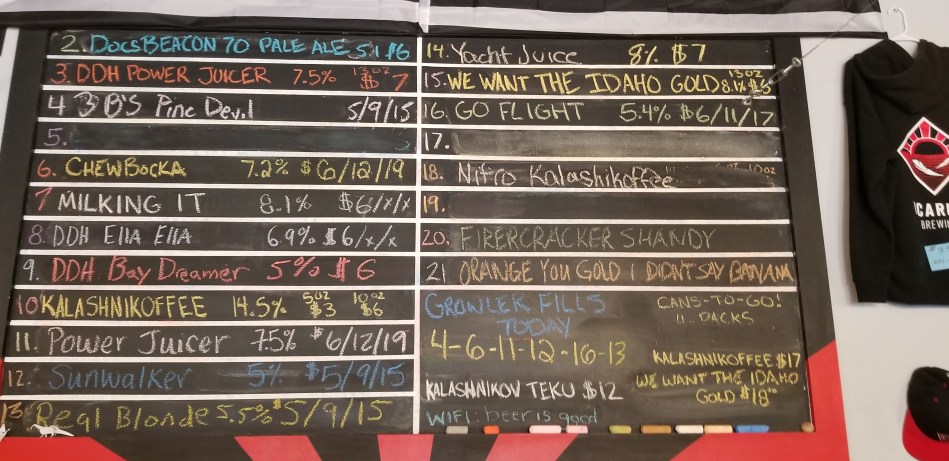 2. DOCSBEACON 70 PALE ALE 5.1 $6
3. DDH POWER JUICER 7.5% 13 OZ $7
4 3 B'S Pine Devil 5/9/15
5.
6. CHEWBOCKA 7.2% $6/12/19
7 MILKING IT 8.1% $6/x/x
8. DDH Ella Ella 6.9% $6/x/x
9. DDH Bay Dreamer 5% $6
10 KALASHNIKOFFEE 14.5% 5 OZ $3 10 OZ $6
11. Power Juicer 7.5% $6/12/19
12. Sunwalker 5% $5/9/15
13 Real Blonde 5.5% $5/9/15
14. Yacht Juice 8% $7
15. WE WANT THE IDAHO GOLD 8.1% 13 OZ
16. GO FLIGHT 5.4% $6/11/17
17.
18. Nitro Kalashikoffee 10 OZ
19.
20. FIRERCRACKER SHANDY
21 ORANGE YOU GOLD I DIDN'T SAY BANANA
GROWLER FILLS
TODAY
4-6-11-12-16-13
KALASHNIKOV TEKU $12
WIFI: beer is good
CANS-TO-GO!
4 PACKS
KALASHNIKOFFEE $17
WE WANT THE IDAHO
GOLD $18
BREWIN